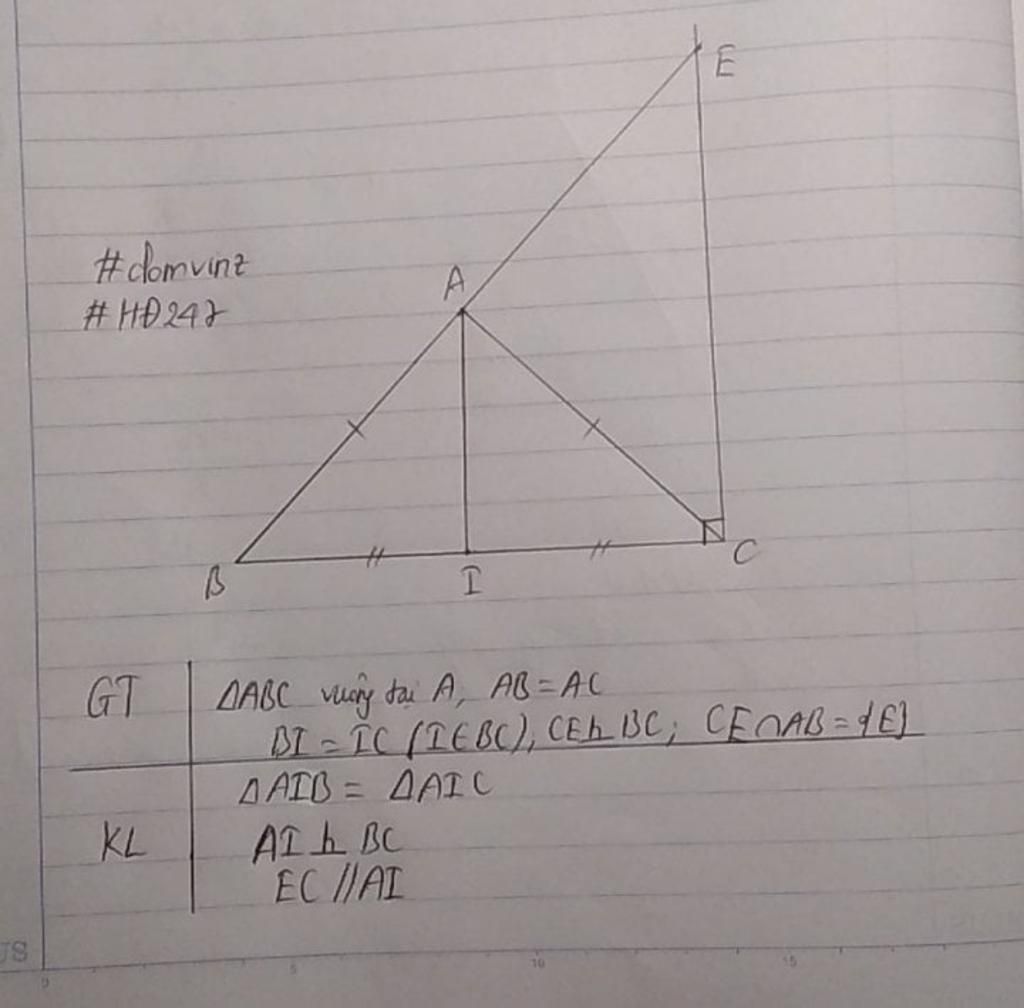 #domvinz
#HĐ247
E
A
B
I
C
GT
ΔABC vuông tại A, AB = AC
BI = IC (I∈BC), CE⊥BC; CE∩AB = {E}
KL
ΔAIB = ΔAIC
AI ⊥ BC
EC // AI
US
0 5 10 15